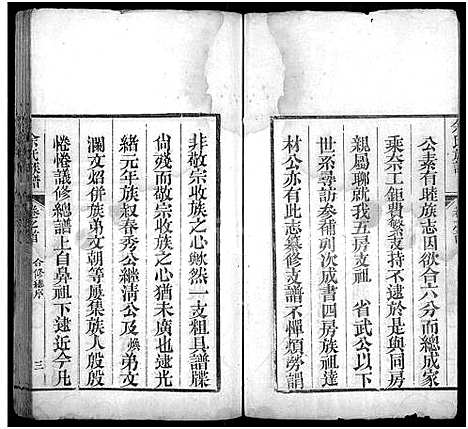 公素有睦族志因欲合六分而總成家
乘奈工鉅費繁支持不逮於是與同房
親屬聊就我五房支祖 省武公以下
世系尋訪參補列次成書四房族達
材公亦有此志纂修支譜不憚煩勞謂
非敬宗收族之心歟然一支粗具譜牒
尚殘而敬宗收族之心猶未廣也逮光
緒元年族叔春秀公繼清公及煥弟文
瀾文炤併族弟文朝等屢集族人殷殷
惓惓議修總譜上自鼻祖下逮近今凡
余氏族譜 卷之首 合修總序 三